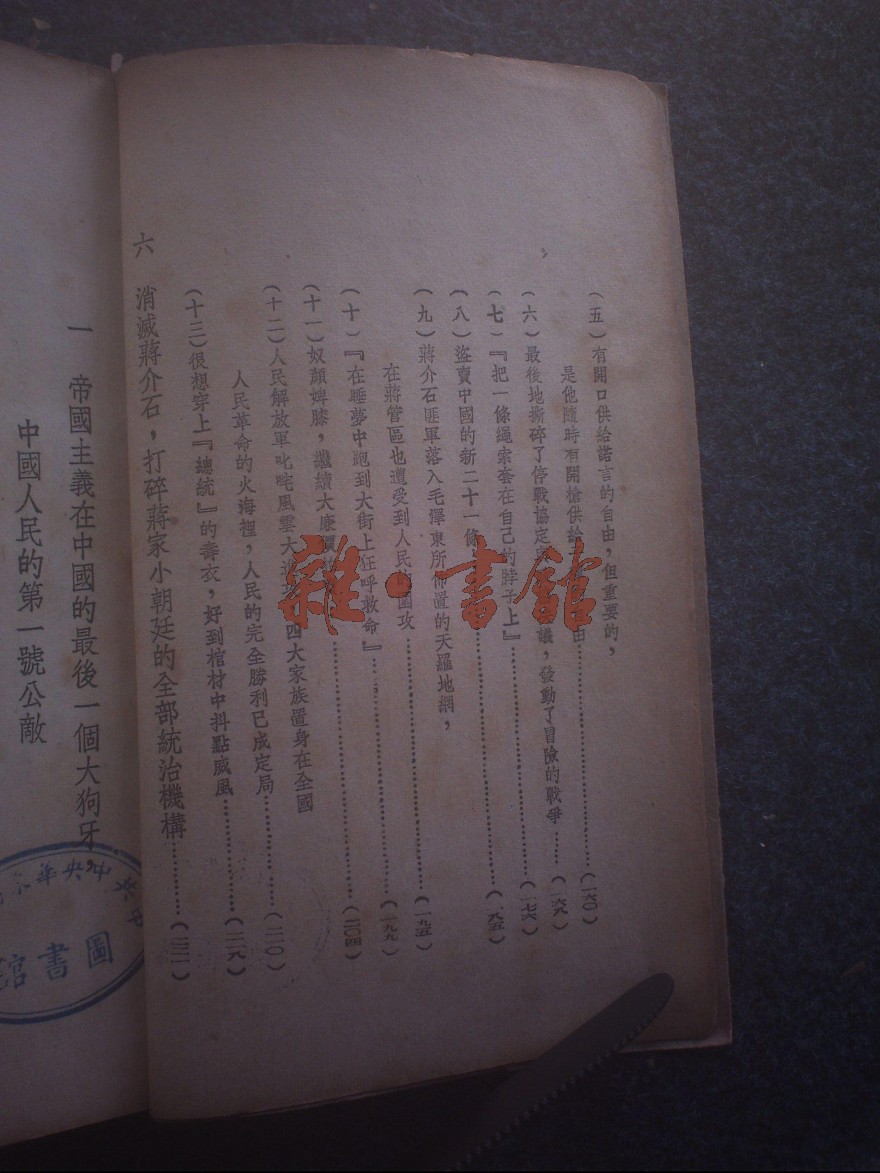 (五)有開口供給諾言的自由,但重要的,
是他隨時有開槍供給 由………(一六〇)
(六)最後地撕碎了停戰協定 議,發動了冒險的戰爭……(一六八)
(七)『把一條繩索套在自己的脖子上』………(一七六)
(八)盜賣中國的新二十一條………(一八五)
(九)蔣介石匪軍落入毛澤東所佈置的天羅地網,
在蔣管區也遭受到人民 圍攻………(一九五)
(十)『在睡夢中跑到大街上狂呼救命』………(一九九)
(十一)奴顏婢膝,繼續大廉價 ………(二〇四)
(十二)人民解放軍叱咤風雲大進 四大家族置身在全國
人民革命的火海裡,人民的完全勝利已成定局………(二一〇)
(十三)很想穿上『總統』的壽衣,好到棺材中抖點威風………(二一八)
六 消滅蔣介石,打碎蔣家小朝廷的全部統治機構………(二二一)
一 帝國主義在中國的最後一個大狗牙,
中國人民的第一號公敵
圖書館
雜·書館